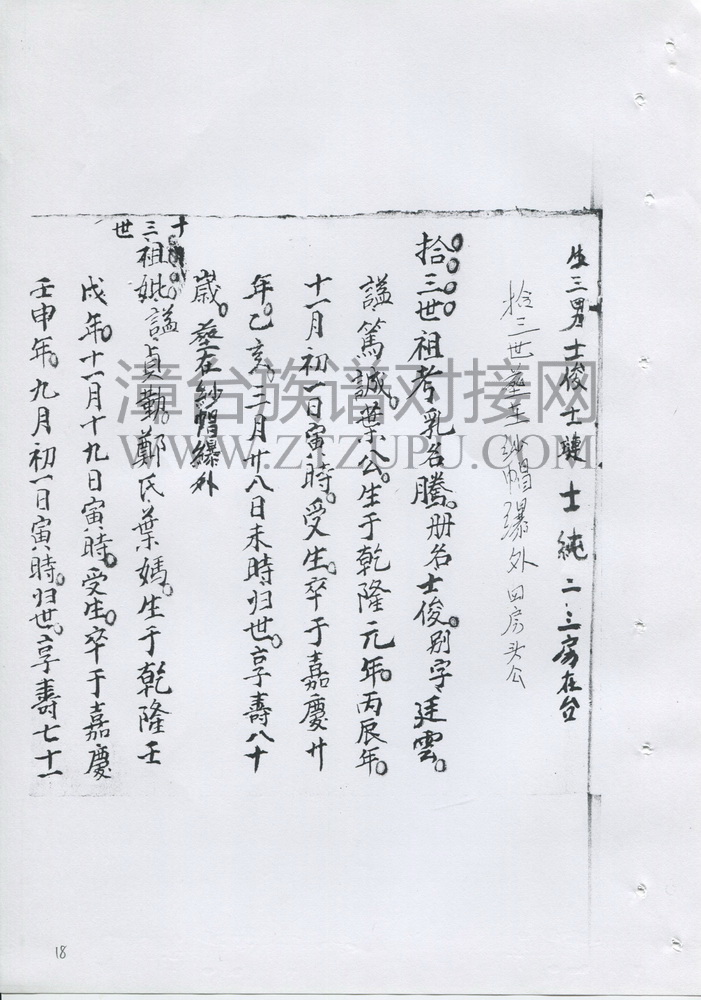 生三男士俊士璉士純二三房在台
拾三世塟在紗帽𤅬外四房头公
拾三世祖考乳名騰。册名士俊。别字廷雲。
謚篤誠葉公。生于乾隆元年。丙辰年。
十一月初一日寅時。受生。卒于嘉慶廿
年。乙亥。二月廿八日未時归世。享壽八十
歲。塟在紗帽外
十三世
祖妣謚貞勤鄭氏葉媽。生于乾隆壬
戌年。十一月十九日寅時。受生。卒于嘉慶
壬申年。九月初一日寅時。归世。享壽七十一
漳台族谱对接网
WWW.ZTZUPU.COM
18